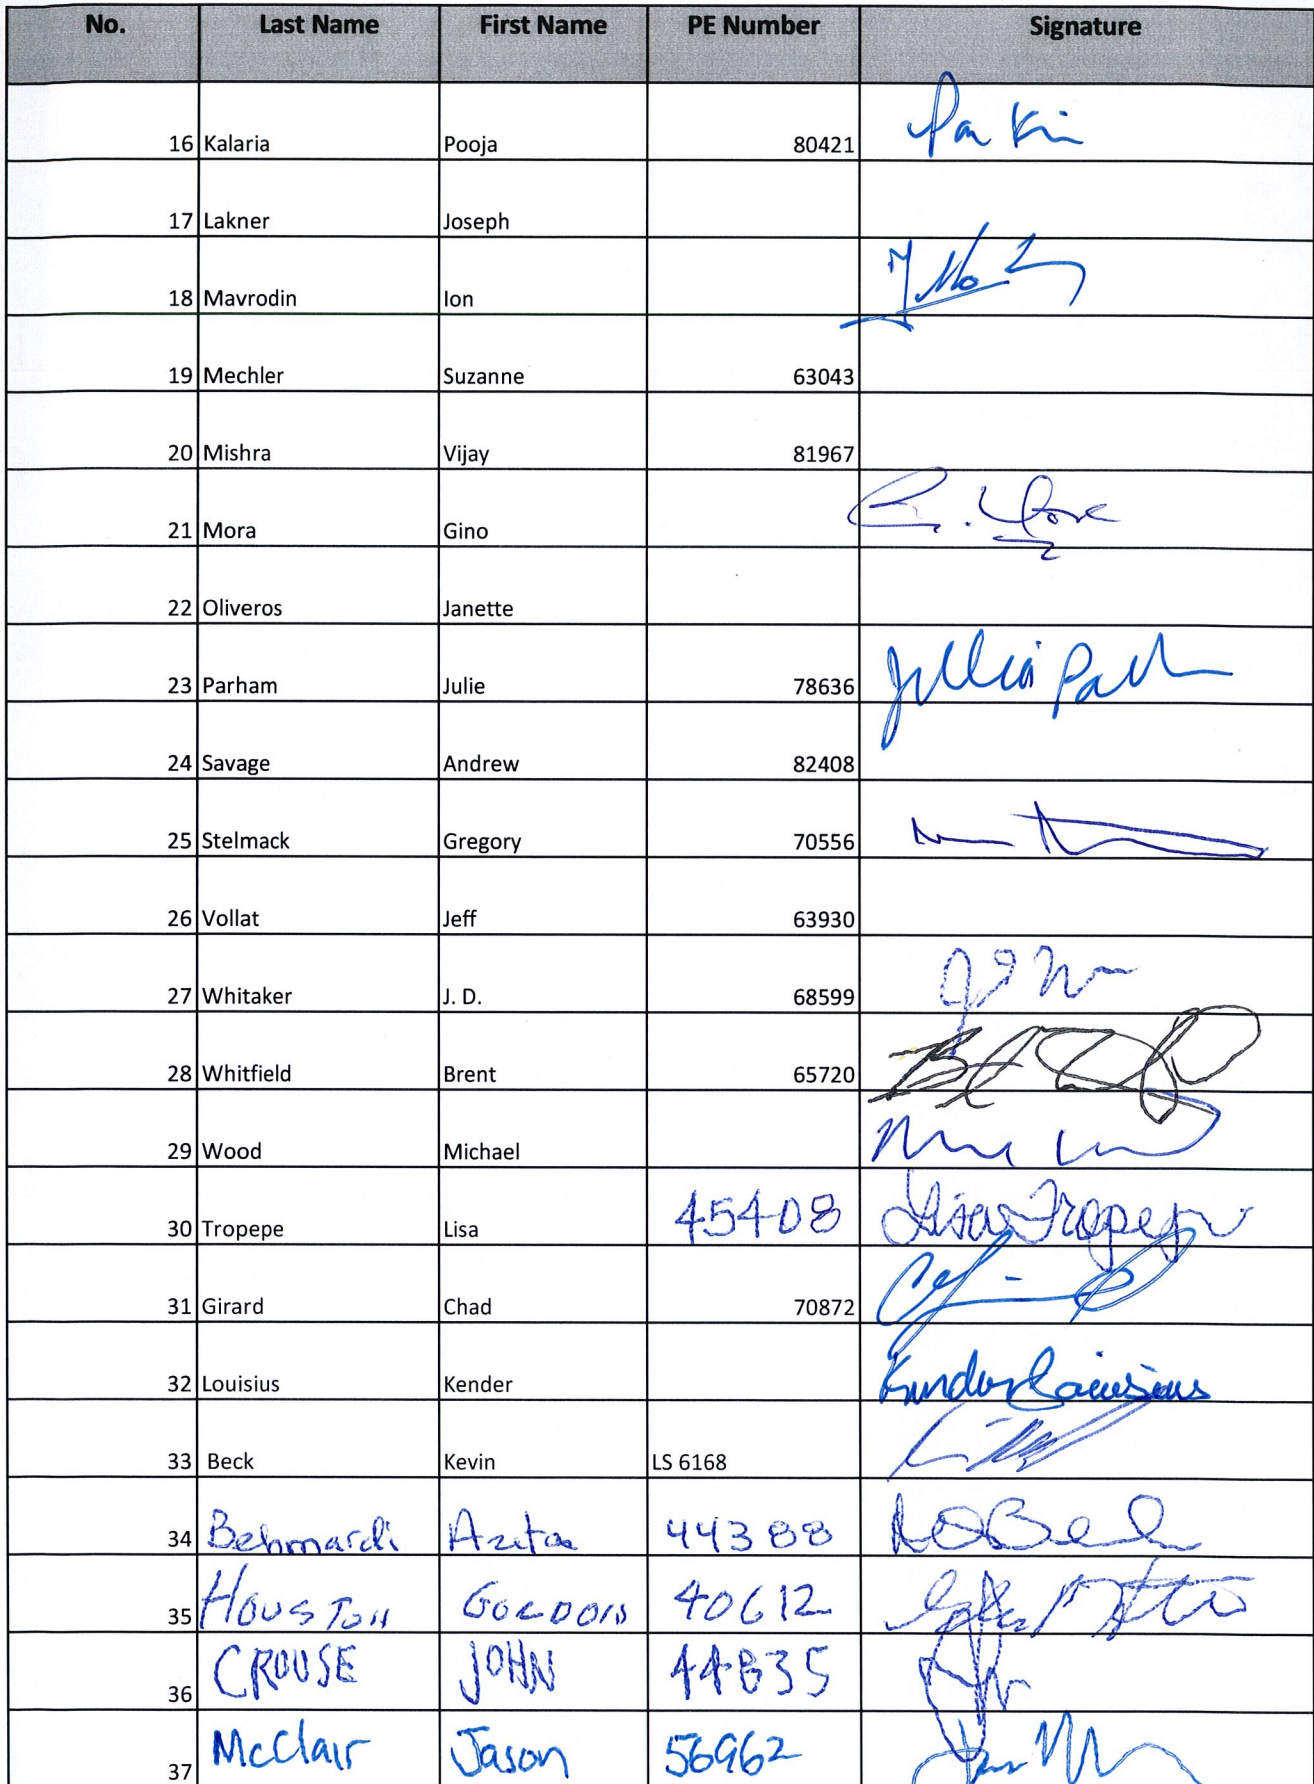 No. Last Name First Name PE Number Signature
16 Kalaria Pooja 80421
17 Lakner Joseph
18 Mavrodin Ion
19 Mechler Suzanne 63043
20 Mishra Vijay 81967
21 Mora Gino
22 Oliveros Janette
23 Parham Julie 78636
24 Savage Andrew 82408
25 Stelmack Gregory 70556
26 Vollat Jeff 63930
27 Whitaker J. D. 68599
28 Whitfield Brent 65720
29 Wood Michael
30 Tropepe Lisa 45408 Lisa Tropepe
31 Girard Chad 70872
32 Louisius Kender Kender Louisius
33 Beck Kevin LS 6168
34 Behmardi Azita 44388
35 HOUSTON GORDON 40612
36 CROUSE JOHN 44835
37 McClair Jason 56962